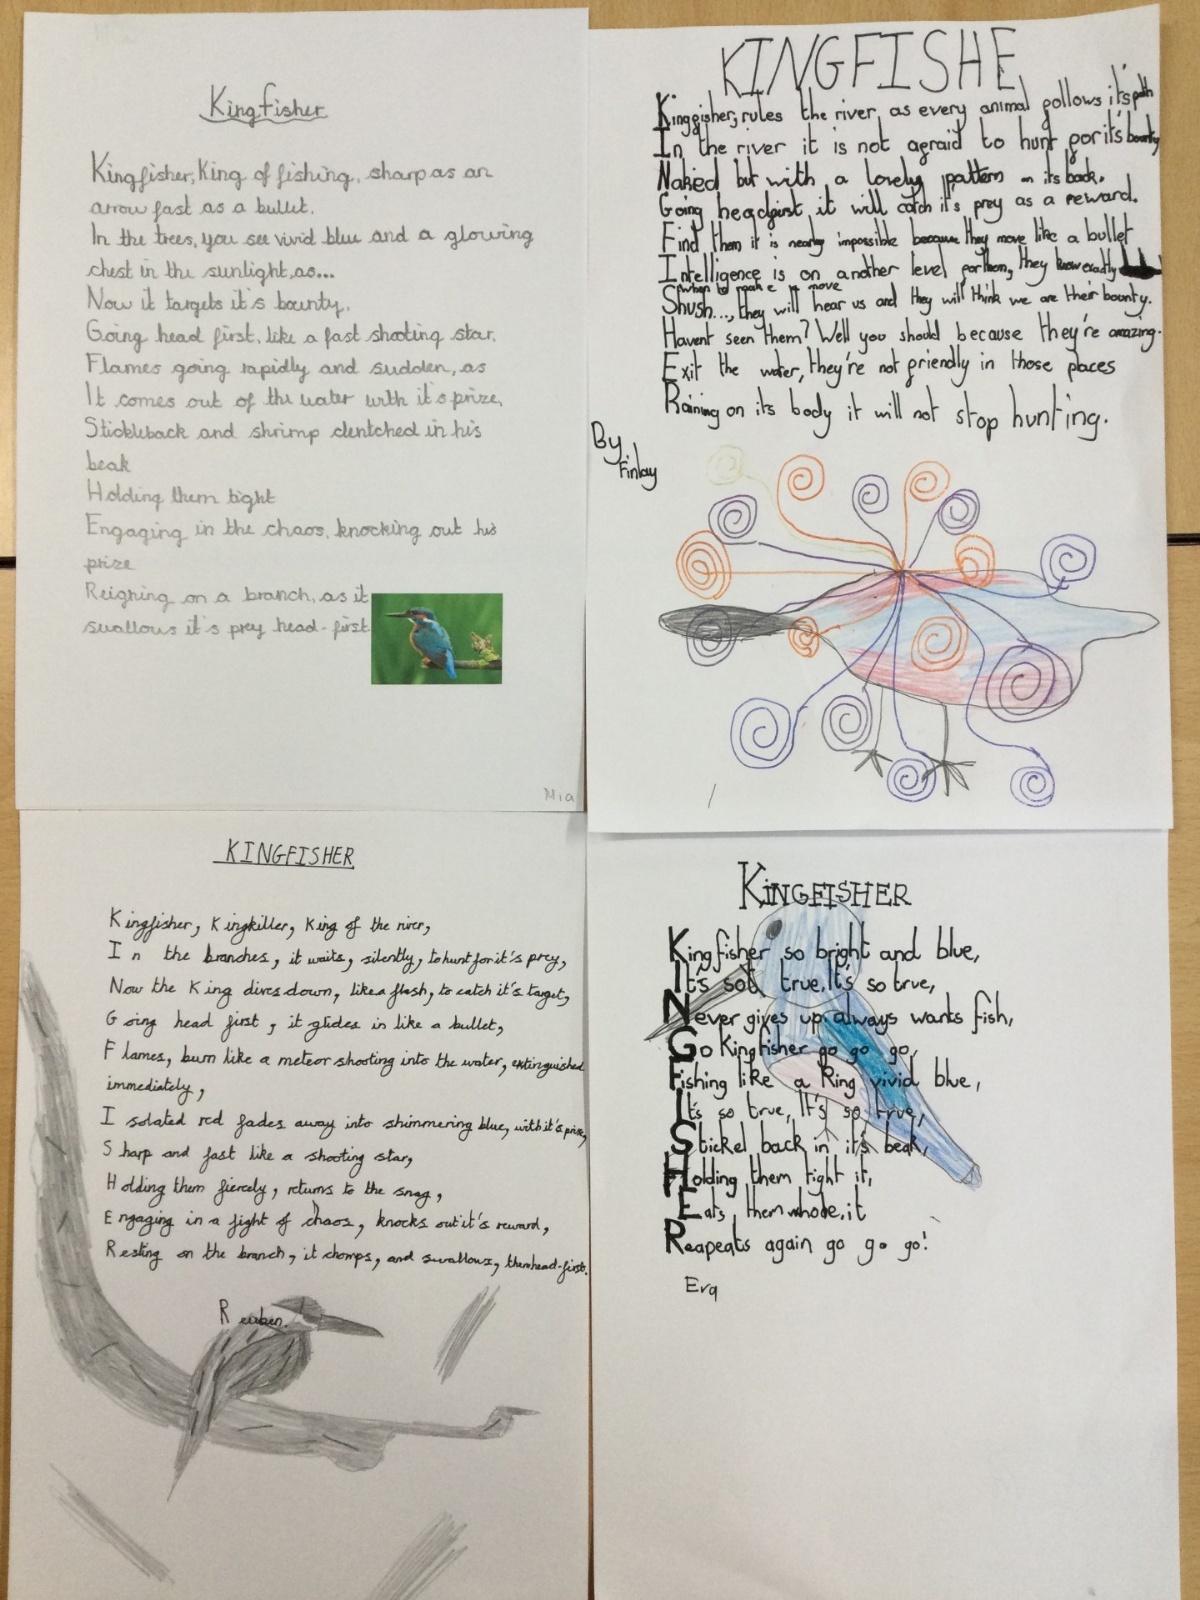 Kingfisher
Kingfisher, King of fishing, sharp as an
arrow fast as a bullet.
In the trees, you see vivid blue and a glowing
chest in the sunlight, as...
Now it targets it's bounty.
Going head first, like a fast shooting star.
Flames going rapidly and sudden, as
It comes out of the water with it's prize,
Stickleback and shrimp clentched in his
beak
Holding them tight
Engaging in the chaos, knocking out his
prize
Reigning on a branch, as it
swallows it's prey head-first
Mia
KINGFISHE
Kingfisher, rules the river, as every animal follows it's path
In the river it is not afraid to hunt for it's bounty
Naked but with a lovely pattern on its back.
Going headfirst it will catch it's prey as a reward.
Find them it is nearly impossible because they move like a bullet
Intelligence is on another level for them, they know exactly
when to make a move
Shush..., they will hear us and they will think we are their bounty.
Havent seen them? Well you should because they're amazing.
Exit the water, they're not friendly in those places
Raining on its body it will not stop hunting.
By
Finlay
KINGFISHER
Kingfisher, Kingkiller, King of the river,
In the branches, it waits, silently, to hunt for it's prey,
Now the King dives down, like a flash, to catch it's target,
Going head first, it glides in like a bullet,
Flames, burn like a meteor shooting into the water, extinguished
immediately,
Isolated red fades away into shimmering blue, with it's prize,
Sharp and fast like a shooting star,
Holding them fiercely, returns to the snag,
Engaging in a fight of chaos, knocks out it's reward,
Resting on the branch, it chomps, and swallows, them head-first.
Reuben.
KINGFISHER
Kingfisher so bright and blue,
It's sot true, It's so true,
Never gives up always wants fish,
Go Kingfisher go go go,
Fishing like a King vivid blue,
It's so true, It's so true,
Stickel back in it's beak,
Holding them tight it,
Eats them whode, it
Reapeats again go go go!